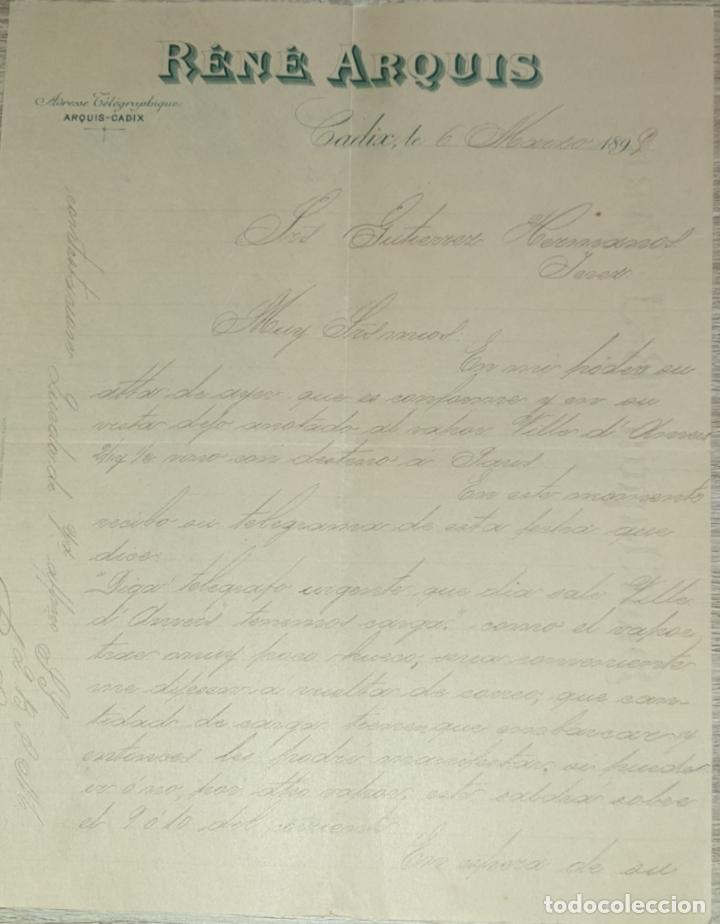 RÉNÉ ARQUIS
Adresse Télégraphique
ARQUIS-CADIX
Cadix, le 6 Marzo 189
Srs Gutierrez Hermanos
Jerez
Muy Srs mios:
En mi poder su
atta de ayer que es conforme y en su
vista dejo anotado al vapor Ville d'Anvers
vino con destino á
En este momento
recibo su telegrama de esta fecha que
dice:
"Diga telegrafo urgente, que dia sale Ville
d'Anvers tenemos carga." como el vapor
trae muy poco hueco, seria conveniente
me dijesen a vuelta de correo, que can-
tidad de carga tienen que embarcar y
entonces les podre manifestar, si puede
ir ó no, por otro vapor, este saldrá sobre
el 9 ó 10 del corriente
En espera de su
contestacion quedo de Vds affmo S.S.
Q B S M
todocoleccion.net